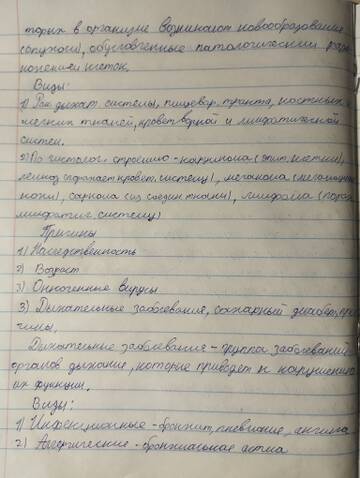 торых в организме возникают новообразования
(опухоли), обусловленные патологическим раз
ножением клеток.
Виды:
1) Рак дыхат системы, пищевар. тракта, костных и
мягких тканей, кроветворной и лимфатической
систем.
2) По гистолог. строению - карцинома (эпит. клетки),
лейкоз, меланома
кожи), саркома (из соедин ткани), лимфома
лимфатич. систему)
Причины
1) Наследственность
2) Возраст
3) Онкогенные вирусы
3) Дыхательные заболевания, сахарный диабет,
Дыхательные заболевания - группа заболеваний
органов дыхание, которые приводят к нарушению
их функции.
Виды:
1) Инфекционные - бронхит, пневмание, ангина
2) Аллергические - бронхиальная астма